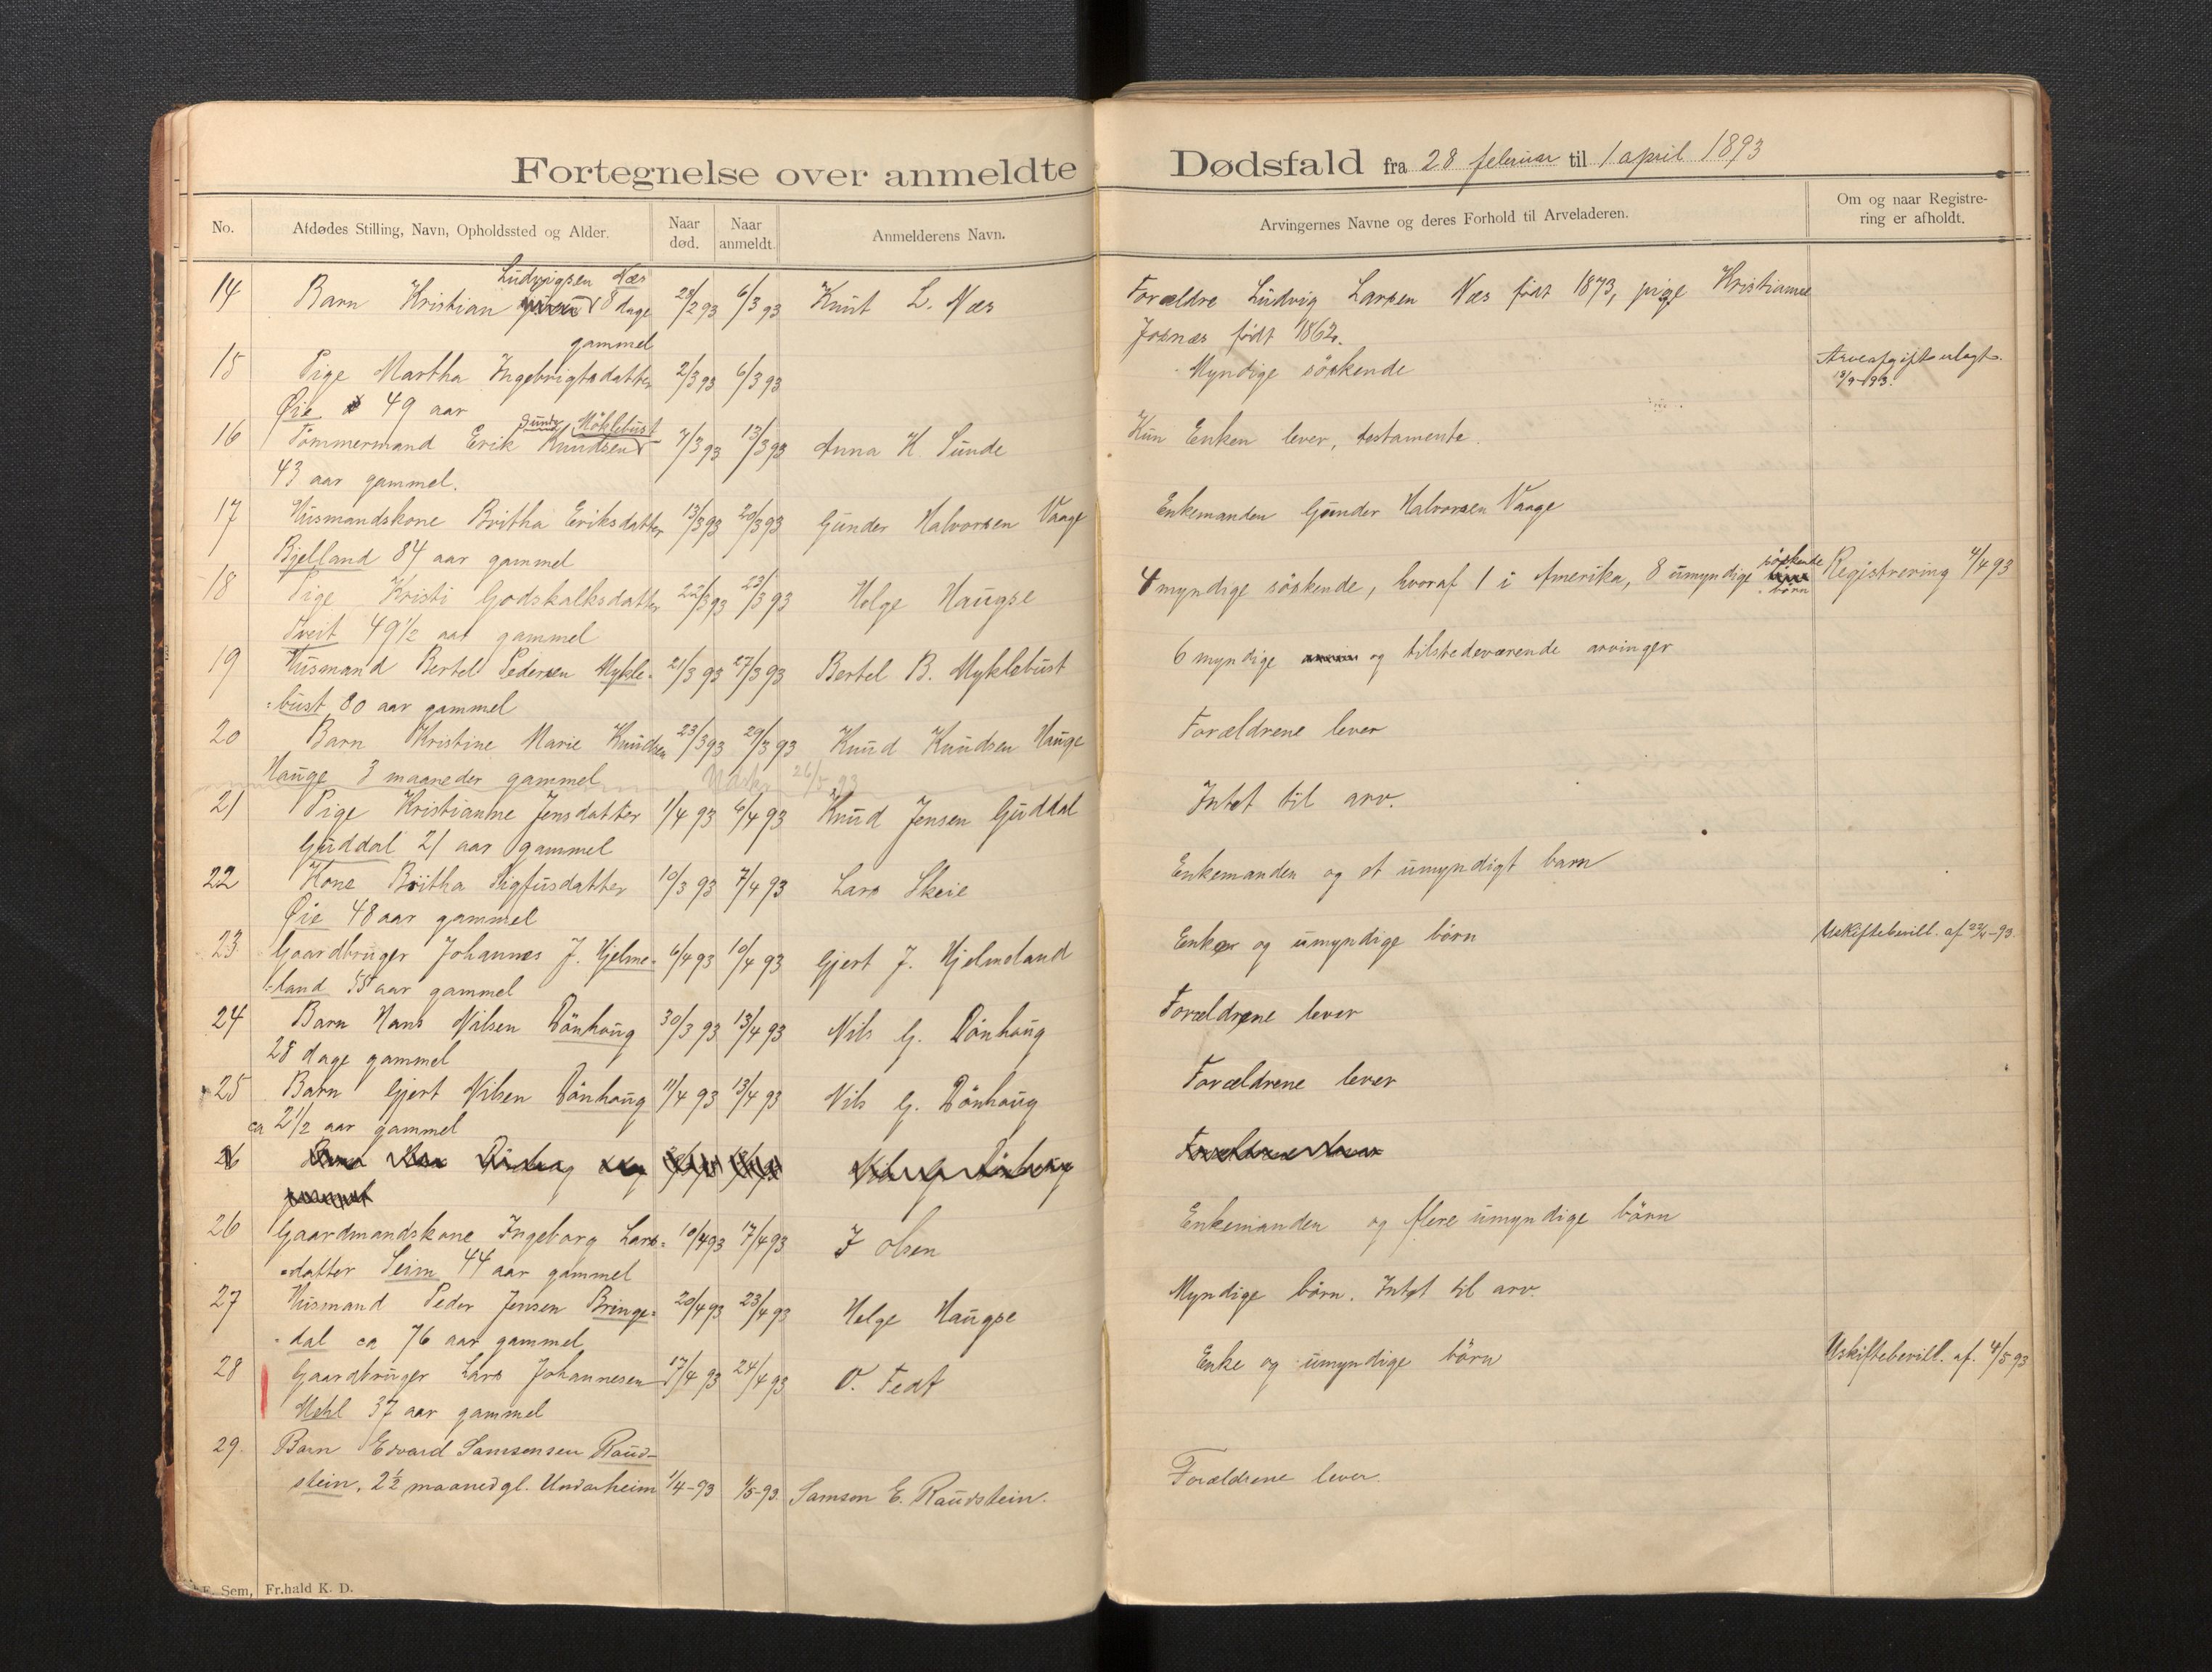 Fortegnelse over anmeldte Dødsfald fra 28 februar til 1 april 1893
No. Afdødes Stilling, Navn, Opholdssted og Alder. Naar død. Naar anmeldt. Anmelderens Navn. Arvingernes Navne og deres Forhold til Arveladeren. Om og naar Registrering er afholdt.
Ludvigsen Næs
14 Barn Kristian 8 dage 28/2 93 6/3 93 Knut L. Næs Forældre Ludvig Larsen Næs født 1873, pige Kristianne
gammel Josnæs født 1862.
15 Pige Martha Ingebrigtsdatter 2/3 93 6/3 93 Myndige söskende Arveafgift ulagt. 13/9-193.
Øie 49 aar
Sunde Möklebust
16 Tømmermand Erik Knudsen 7/3 93 13/3 93 Anna K Sunde Kun Enken lever, testamente.
43 aar gammel.
17 Husmandskone Britha Eriksdatter 13/3 93 20/3 93 Gunder Halvorsen Vaage Enkemanden Gunder Halvorsen Vaage
Bjelland 84 aar gammel
18 Pige Kristi Godskalksdatter 22/3 93 23/3 93 Helge Haugse 4 myndige söskende, hvoraf 1 i Amerika, 8 umyndige söskende börn Registrering 4/4 93
Tveit 49 1/2 aar gammel
19 Husmand Bertel Pedersen Mykle- 21/3 93 27/3 93 Bertel B. Myklebust 6 myndige og tilstedeværende arvinger
=bust 80 aar gammel
20 Barn Kristine Marie Knudsen 23/3 93 29/3 93 Knud Knudsen Hauge Forældrene lever
Hauge 3 maaneder gammel 26/5 93
21 Pige Kristianne Jensdatter 1/4 93 6/4 93 Knud Jensen Guddal Intet til arv.
Guddal 21 aar gammel
22 Kone Britha Sigfusdatter 10/3 93 7/4 93 Lars Skeie Enkemanden og et umyndigt barn
Øie 48 aar gammel
23 Gaardbruger Johannes J. Hjelme- 6/4 93 10/4 93 Gjert J. Hjelmeland Enken og umyndige börn Uskiftebevill. af 22/4-93.
=land 55 aar gammel
24 Barn Hans Nilsen Dönhaug 30/3 93 13/4 93 Nils G. Dönhaug Forældrene lever
28 dage gammel
25 Barn Gjert Nilsen Dönhaug 11/4 93 13/4 93 Nils G. Dönhaug Forældrene lever
ca 2 1/2 aar gammel
26 Gaardmandskone Ingeborg Lars= 10/4 93 17/4 93 J Olsen Enkemanden og flere umyndige börn
=datter Seim 44 aar gammel
27 Husmand Peder Jensen Bringe= 20/4 93 23/4 93 Helge Haugse Myndige börn. Intet til arv.
=dal ca 76 aar gammel
28 Gaardbruger Lars Johannesen 17/4 93 24/4 93 O. Fedt Enke og umyndige börn Uskiftebevill. af. 4/5 93
Mehl 37 aar gammel
29. Barn Edvard Samsonsen Raud-
stein, 2 1/2 maaned gl. Undarheim 1/4-93 1/5-93. Samson E. Raudstein. Forældrene lever.
Sem, Fr.hald K. D.